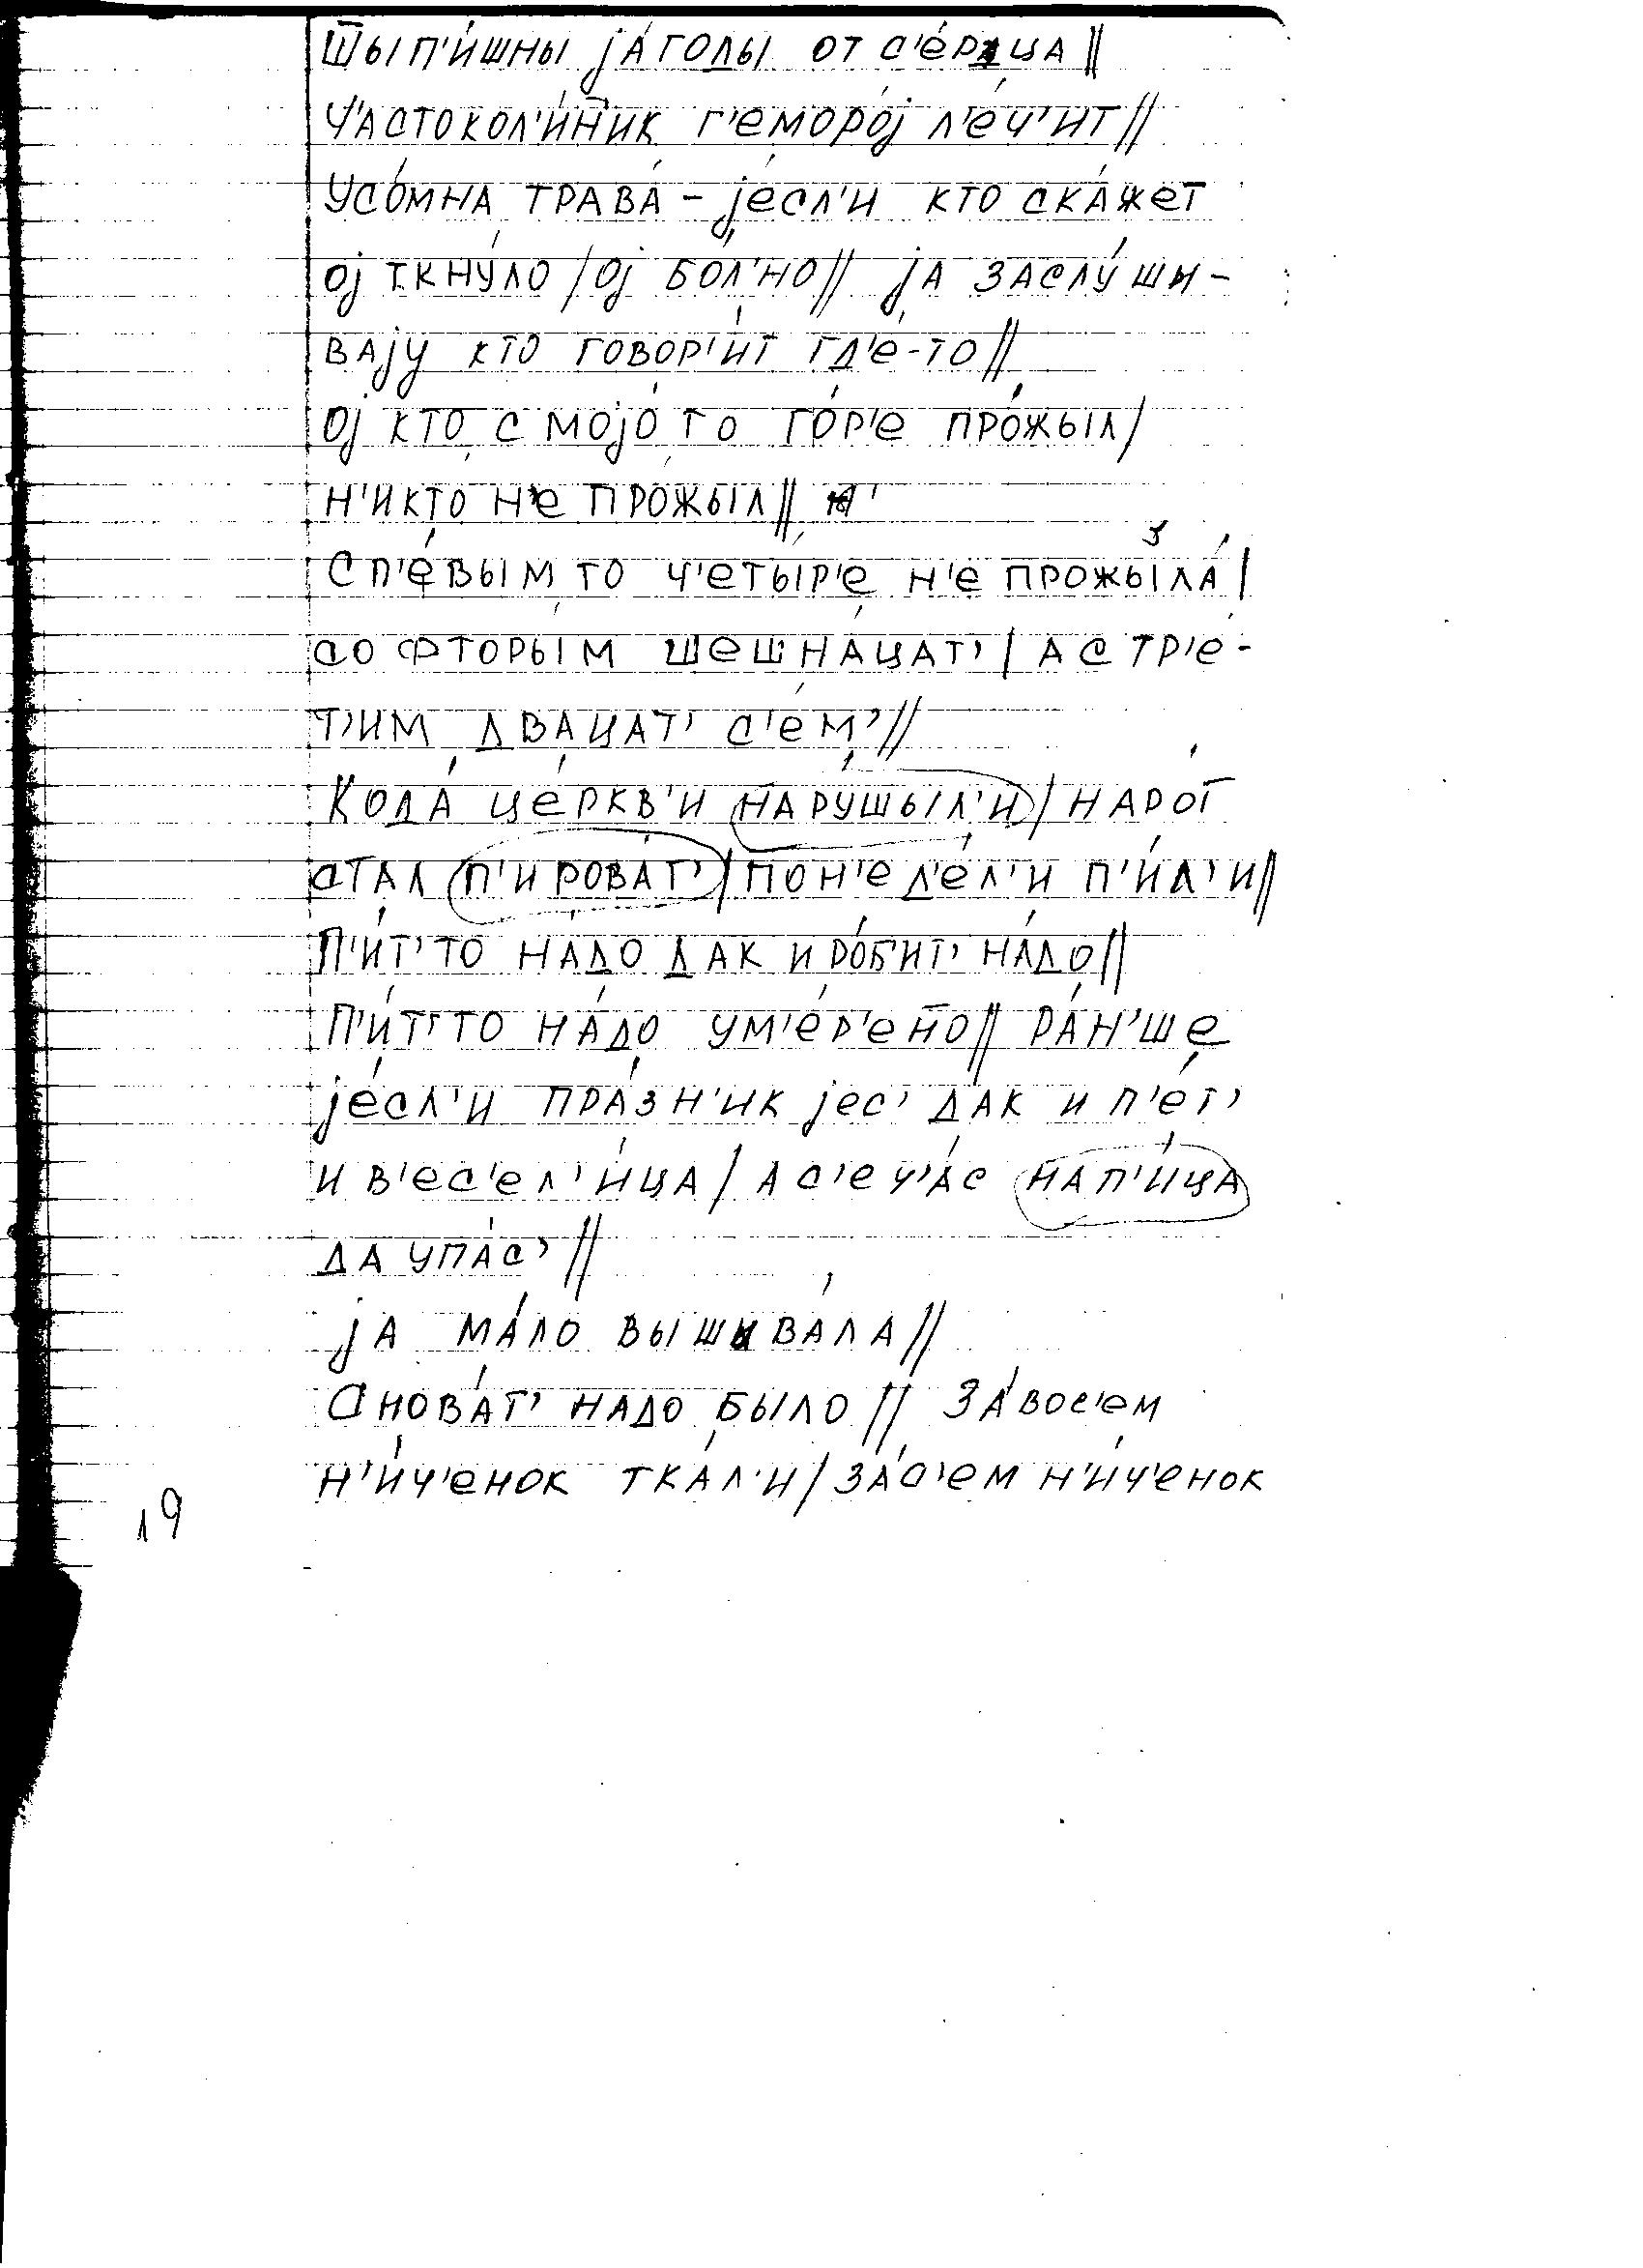 ш̅ып'и́шны jа́годы от с'е́рца//
ч'астокол'и́н̅ик г'еморо́j л'е́ч'ит//
усо́мна трава́ – jе́сл'и кто ска́жет
оj ткну́ло/оj бо́л'но// jа заслу́шы-
ваjу кто говор'и́т гд'е́-то//
оj кто с моjо́го го́р'е про́жыл/
н'икто́ н'е про́жыл//
с п'е́рвым то ч'еты́р'е н'е прожы́ла́/
со фторы́м шешна́цат'/а с тр'е́-
т'им два́цат' с'ем'//
Кода́ це́ркв'и нару́шыл'и/наро́т
стал п'ирова́т'/по н'ед'е́л'и п'и́л'и//
П'и́т' то на́до дак и ро́б'ит' на́до//
П'и́т' то на́до ум'е́р'ен̅о// ра́н'ше
jе́сл'и пра́зн'ик jес' дак и п'е́т'
и в'ес'ел'и́ца/а с'еч'а́с нап'и́ца
да упа́с'//
jа ма́ло вышыва́ла//
Снова́т' на́до было// За́вос'ем
н'и́ч'енок тка́л'и/за́с'ем н'и́ч'енок
19